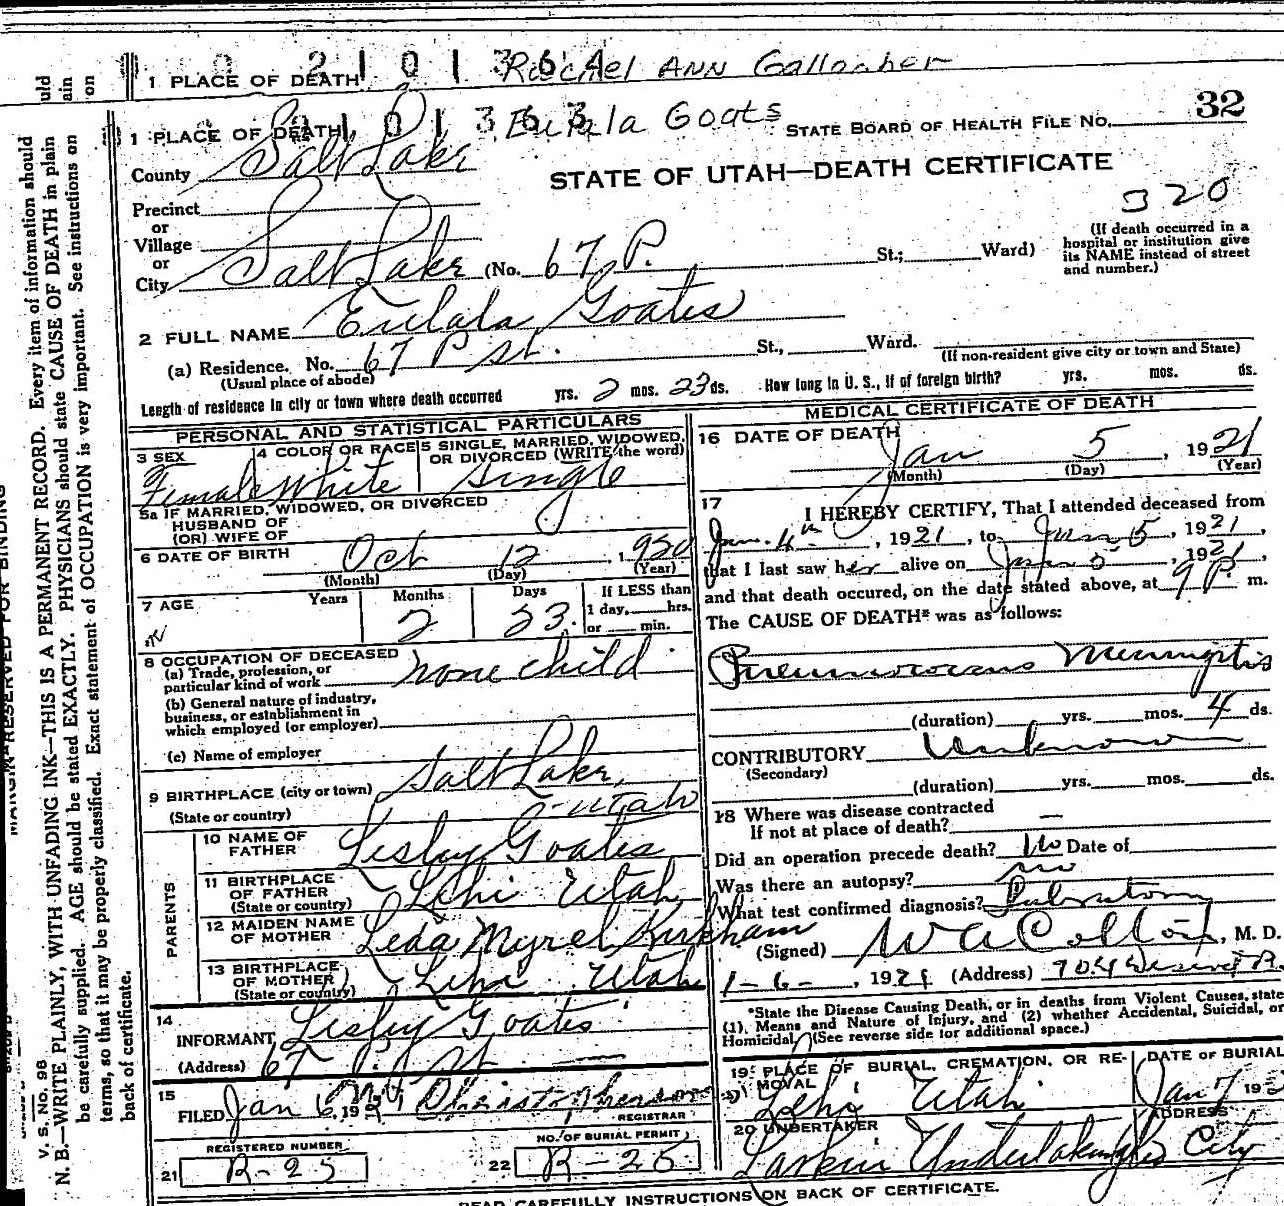 uld
ain
on
1 PLACE OF DEATH 2101364 Rachel ANN Gallagher
1 PLACE OF DEATH 2101363 Eulala Goats STATE BOARD OF HEALTH FILE No. 32
County Salt Lake
STATE OF UTAH—DEATH CERTIFICATE
320
Precinct
or
Village
or
City Salt Lake (No. 67 P. St.; Ward)
(If death occurred in a
hospital or institution give
its NAME instead of street
and number.)
2 FULL NAME Eulala Goates
(a) Residence. No. 67 P St. St., Ward.
(Usual place of abode)
(If non-resident give city or town and State)
Length of residence in city or town where death occurred yrs. 2 mos. 23 ds. How long in U. S., if of foreign birth? yrs. mos. ds.
PERSONAL AND STATISTICAL PARTICULARS
3 SEX Female
4 COLOR OR RACE White
5 SINGLE, MARRIED, WIDOWED, OR DIVORCED (WRITE the word) Single
5a IF MARRIED, WIDOWED, OR DIVORCED
HUSBAND OF
(OR) WIFE OF
6 DATE OF BIRTH Oct 12 1920
(Month) (Day) (Year)
7 AGE Years Months Days If LESS than
2 23. 1 day, hrs.
or min.
8 OCCUPATION OF DECEASED
(a) Trade, profession, or
particular kind of work none child
(b) General nature of industry,
business, or establishment in
which employed (or employer)
(c) Name of employer
9 BIRTHPLACE (city or town) Salt Lake,
(State or country) Utah
PARENTS
10 NAME OF FATHER Lesley Goates
11 BIRTHPLACE OF FATHER Lehi Utah
(State or country)
12 MAIDEN NAME OF MOTHER Leda Myrel Kirkham
13 BIRTHPLACE OF MOTHER Lehi Utah
(State or country)
14
INFORMANT Lesley Goates
(Address) 67 P. St
15
FILED Jan 6, 19
REGISTRAR
REGISTERED NUMBER
21 R-25
NO. OF BURIAL PERMIT
22 R-25
MEDICAL CERTIFICATE OF DEATH
16 DATE OF DEATH
Jan 5, 1921
(Month) (Day) (Year)
17 I HEREBY CERTIFY, That I attended deceased from
Jan. 4th, 1921, to Jan 5, 1921,
that I last saw her alive on Jan 5, 1921,
and that death occured, on the date stated above, at 9 P. m.
The CAUSE OF DEATH* was as follows:
Pneumococcus Meningitis
(duration) yrs. mos. 4 ds.
CONTRIBUTORY Unknown
(Secondary)
(duration) yrs. mos. ds.
18 Where was disease contracted
If not at place of death? —
Did an operation precede death? No Date of
Was there an autopsy? no
What test confirmed diagnosis? Laboratory
(Signed) W A Colton, M. D.
1-6-, 1921 (Address) 704 Deseret
*State the Disease Causing Death, or in deaths from Violent Causes, state
(1), Means and Nature of Injury, and (2) whether Accidental, Suicidal, or
Homicidal. (See reverse side for additional space.)
19 PLACE OF BURIAL, CREMATION, OR REMOVAL
Lehi Utah
DATE OF BURIAL
Jan 7 19
20 UNDERTAKER
Larkin Undertaking
ADDRESS
City
READ CAREFULLY INSTRUCTIONS ON BACK OF CERTIFICATE.
MARGIN RESERVED FOR BINDING
V. S. NO. 98
N. B.—WRITE PLAINLY, WITH UNFADING INK—THIS IS A PERMANENT RECORD. Every item of information should
be carefully supplied. AGE should be stated EXACTLY. PHYSICIANS should state CAUSE OF DEATH in plain
terms, so that it may be properly classified. Exact statement of OCCUPATION is very important. See instructions on
back of certificate.